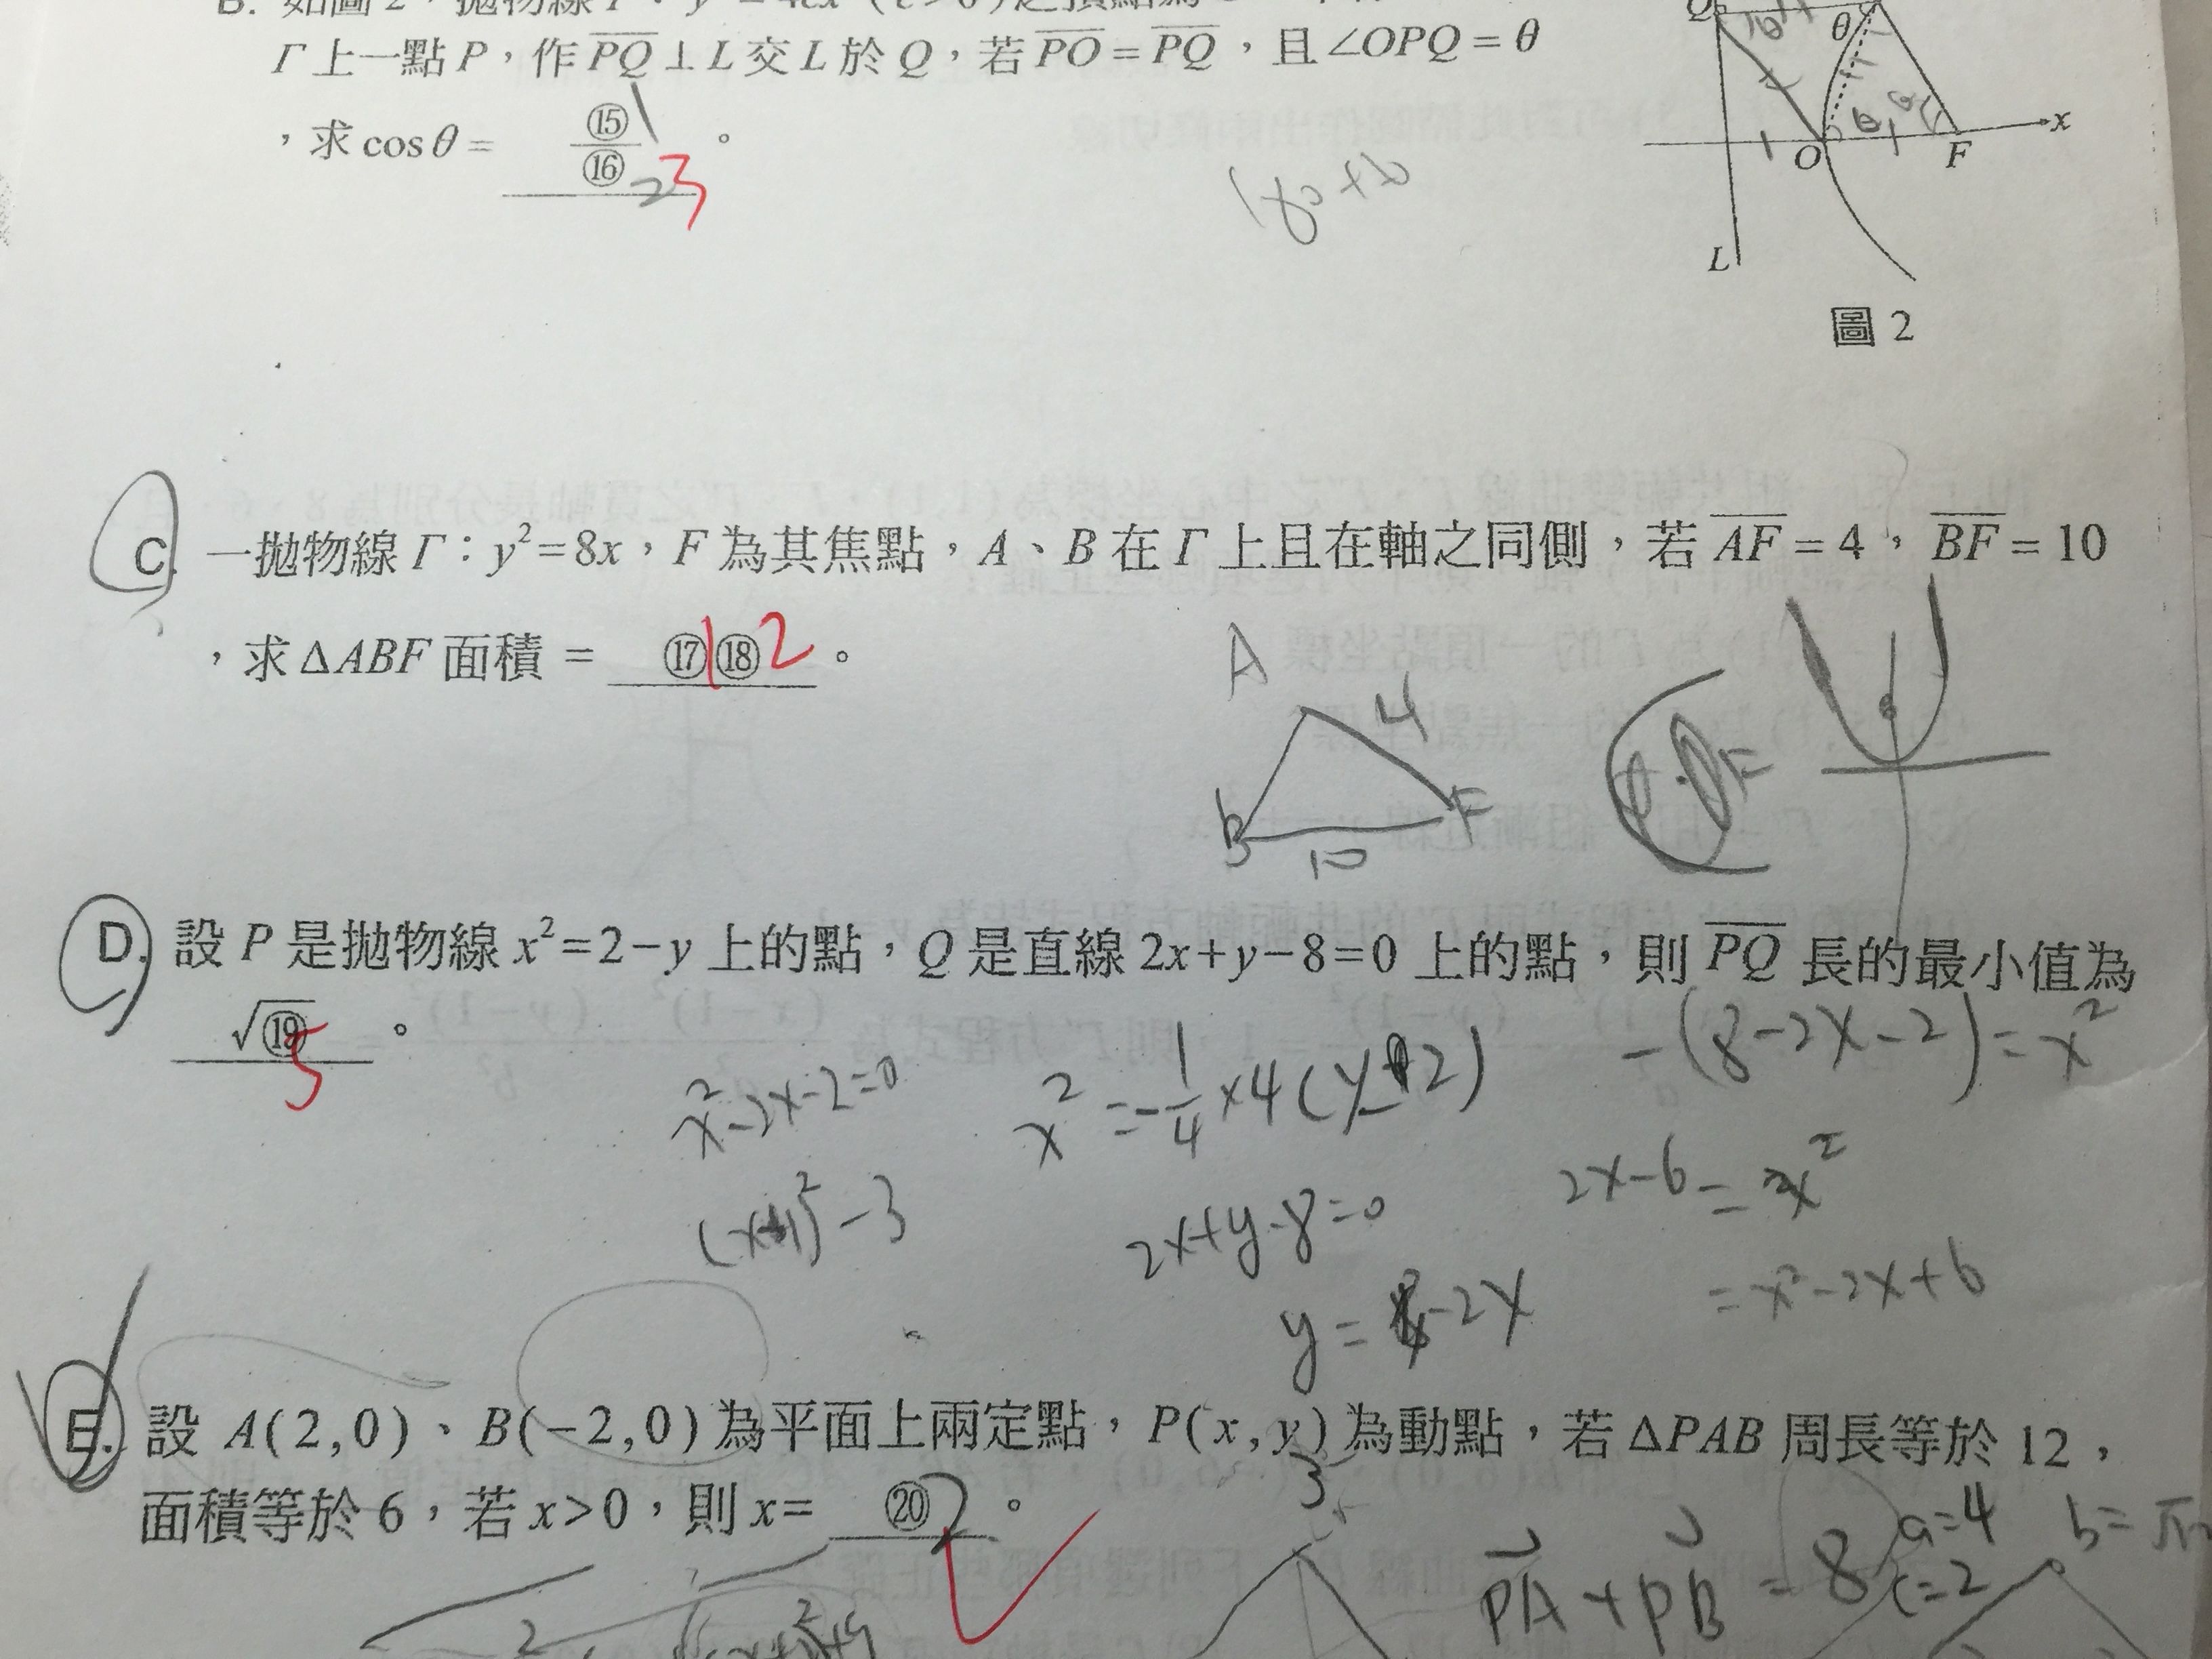 B. 如圖 2，拋物線 Γ：y² = 4cx (c > 0) 之頂點為
Γ 上一點 P，作 PQ ⊥ L 交 L 於 Q，若 PO = PQ，且 ∠OPQ = θ
，求 cos θ = ⑮/⑯ 。
1
2 3
180
Q
θ
x
O
F
L
圖 2
C. 一拋物線 Γ：y² = 8x，F 為其焦點，A、B 在 Γ 上且在軸之同側，若 AF = 4，BF = 10
，求 ΔABF 面積 = ⑰1⑱2 。
A
4
B
F
10
F
D. 設 P 是拋物線 x² = 2 − y 上的點，Q 是直線 2x + y − 8 = 0 上的點，則 PQ 長的最小值為
√⑲ 。
5
−(8−2x−2) = x²
x²−2x−2=0
x² = −1/4 ×4(y−2)
2x−6 = x²
2x+y−8=0
= x²−2x+6
y = 8−2x
E. 設 A(2,0)、B(−2,0) 為平面上兩定點，P(x,y) 為動點，若 ΔPAB 周長等於 12，
面積等於 6，若 x > 0，則 x = ⑳2 。
3
a=4
PA + PB = 8
c=2